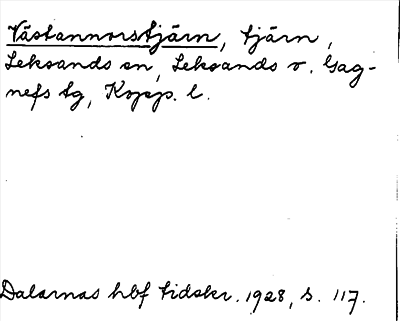 Västannorstjärn, tjärn,
Leksands sn, Leksands o. Gag-
nefs tg, Kopp. l.
Dalarnas hbf tidskr. 1928, s. 117.